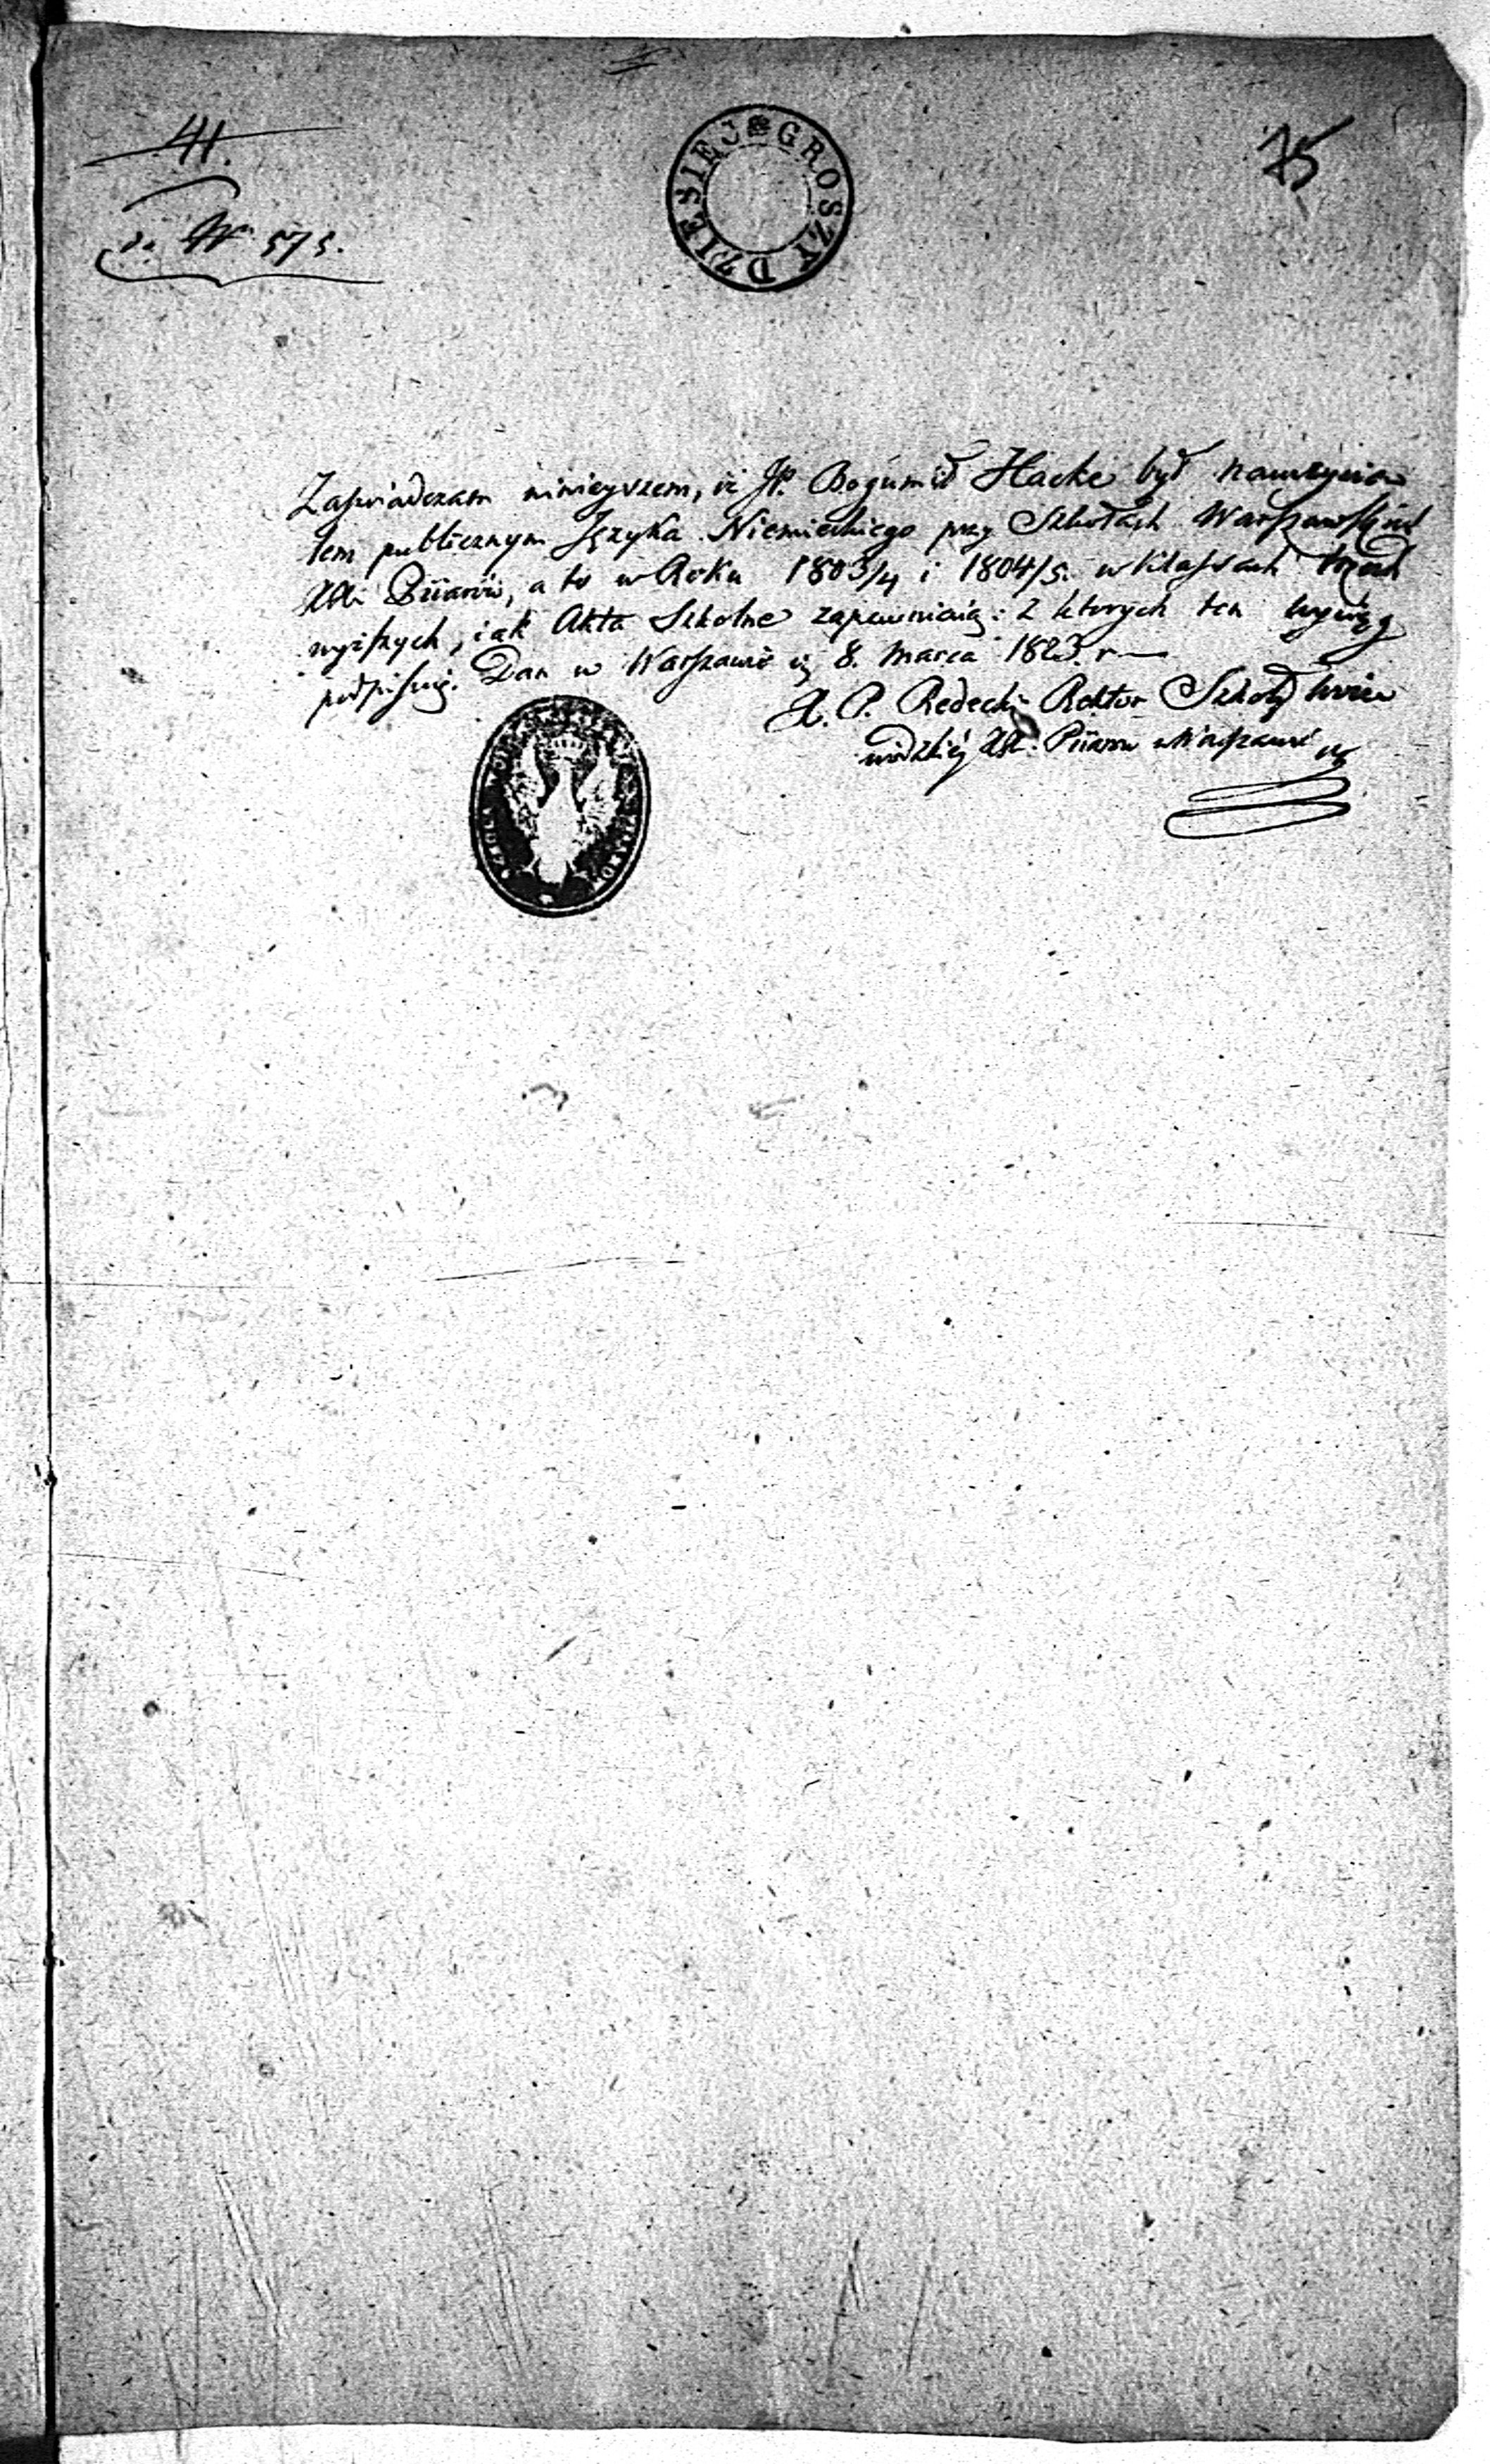 41.
75
GROSZY DZIESIĘĆ
do Nru 575.
Zaświadczam ninieyszem, iż JP. Bogumił Hacke był nauczycie
lem publicznym Języka Niemieckiego przy Szkołach Warszawskich
XX. Piiarów, a to w Roku 1803/4 i 1804/5. w klassach trzech
wyższych, iak Akta Szkolne zapewniaią: z których ten wyciąg
podpisuię. Dan w Warszawie d. 8. Marca 1823. r
X. P. Redecki Rektor Szkoły Woie
wódzkiéj XX. Piiarów w Warszawie